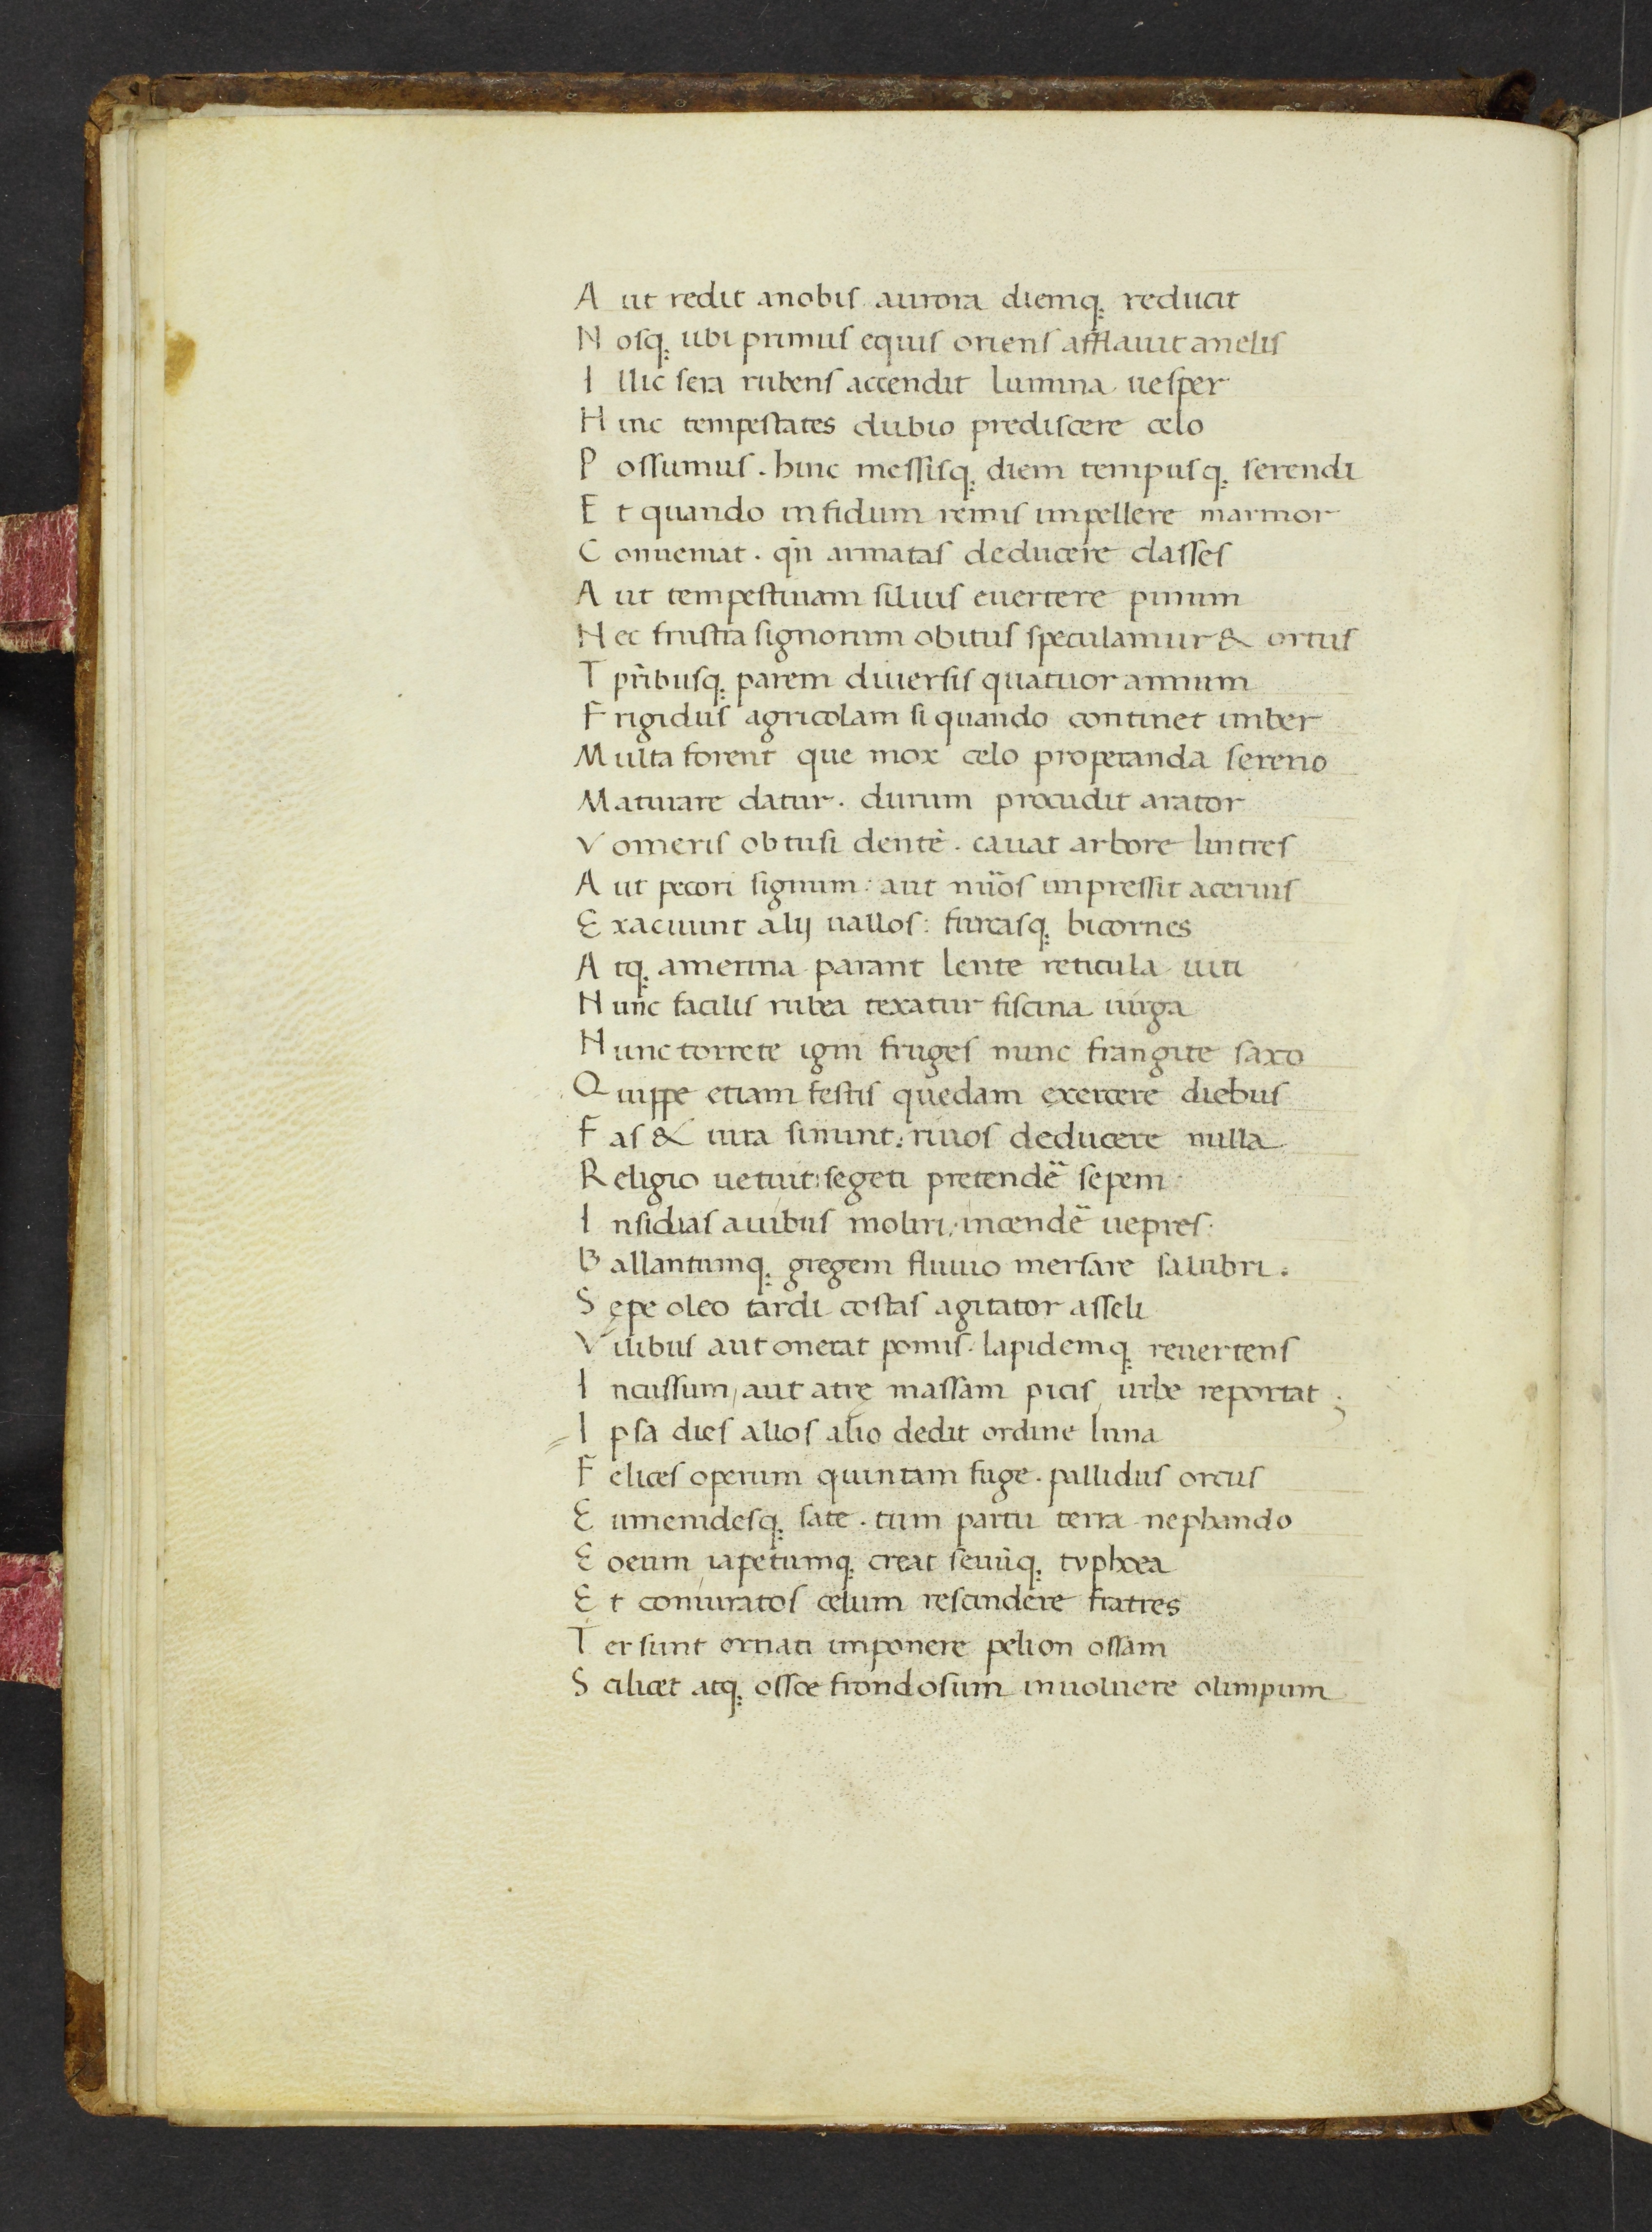 Aut redit anobis aurora diemq; reducit
Nosq; ubi primus equis oriens afflauit anelis
Illic sera rubens accendit lumina uesper
Hinc tempestates dubio prediscere celo
Possumus. hinc messisq; diem tempusq; serendi
Et quando infidum remis impellere marmor
Conueniat. qñ armatas deducere classes
Aut tempestiuam siluis euertere pinum
Nec frustra signorum obitus speculamur & ortus
Tp̃ribusq; parem diuersis quatuor annum
Frigidus agricolam si quando continet imber
Multa forent que mox celo properanda sereno
Maturare datur. durum procudit arator
Vomeris obtusi dentẽ. cauat arbore lintres
Aut pecori signum: aut nũos impressit aceruis
Exacuunt alij uallos: furcasq; bicornes
Atq; amerina parant lente reticula uiti
Nunc facilis rubea texatur fiscina uirga
Nunc torrete igni fruges nunc frangite saxo
Quippe etiam festis quedam exercere diebus
Fas & iura sinunt: riuos deducere nulla
Religio uetuit: segeti pretendẽ sepem
Insidias auibus moliri: incendẽ uepres:
Ballantumq; gregem fluuio mersare salubri.
Sępe oleo tardi costas agitator asseli
Vilibus aut onerat pomis. lapidemq; reuertens
Incussum, aut atrę massam picis, urbe reportat;
Ipsa dies alios alio dedit ordine luna
Felices operum quintam fuge. pallidus orcus
Eumenidesq; sate. tum partu terra nephando
Eoeum iapetumq; creat seuũq; typhoea
Et coniuratos celum rescindere fratres
Ter sunt ornati imponere pelion ossam
Scilicet atq; ossoe frondosum inuoluere olimpum